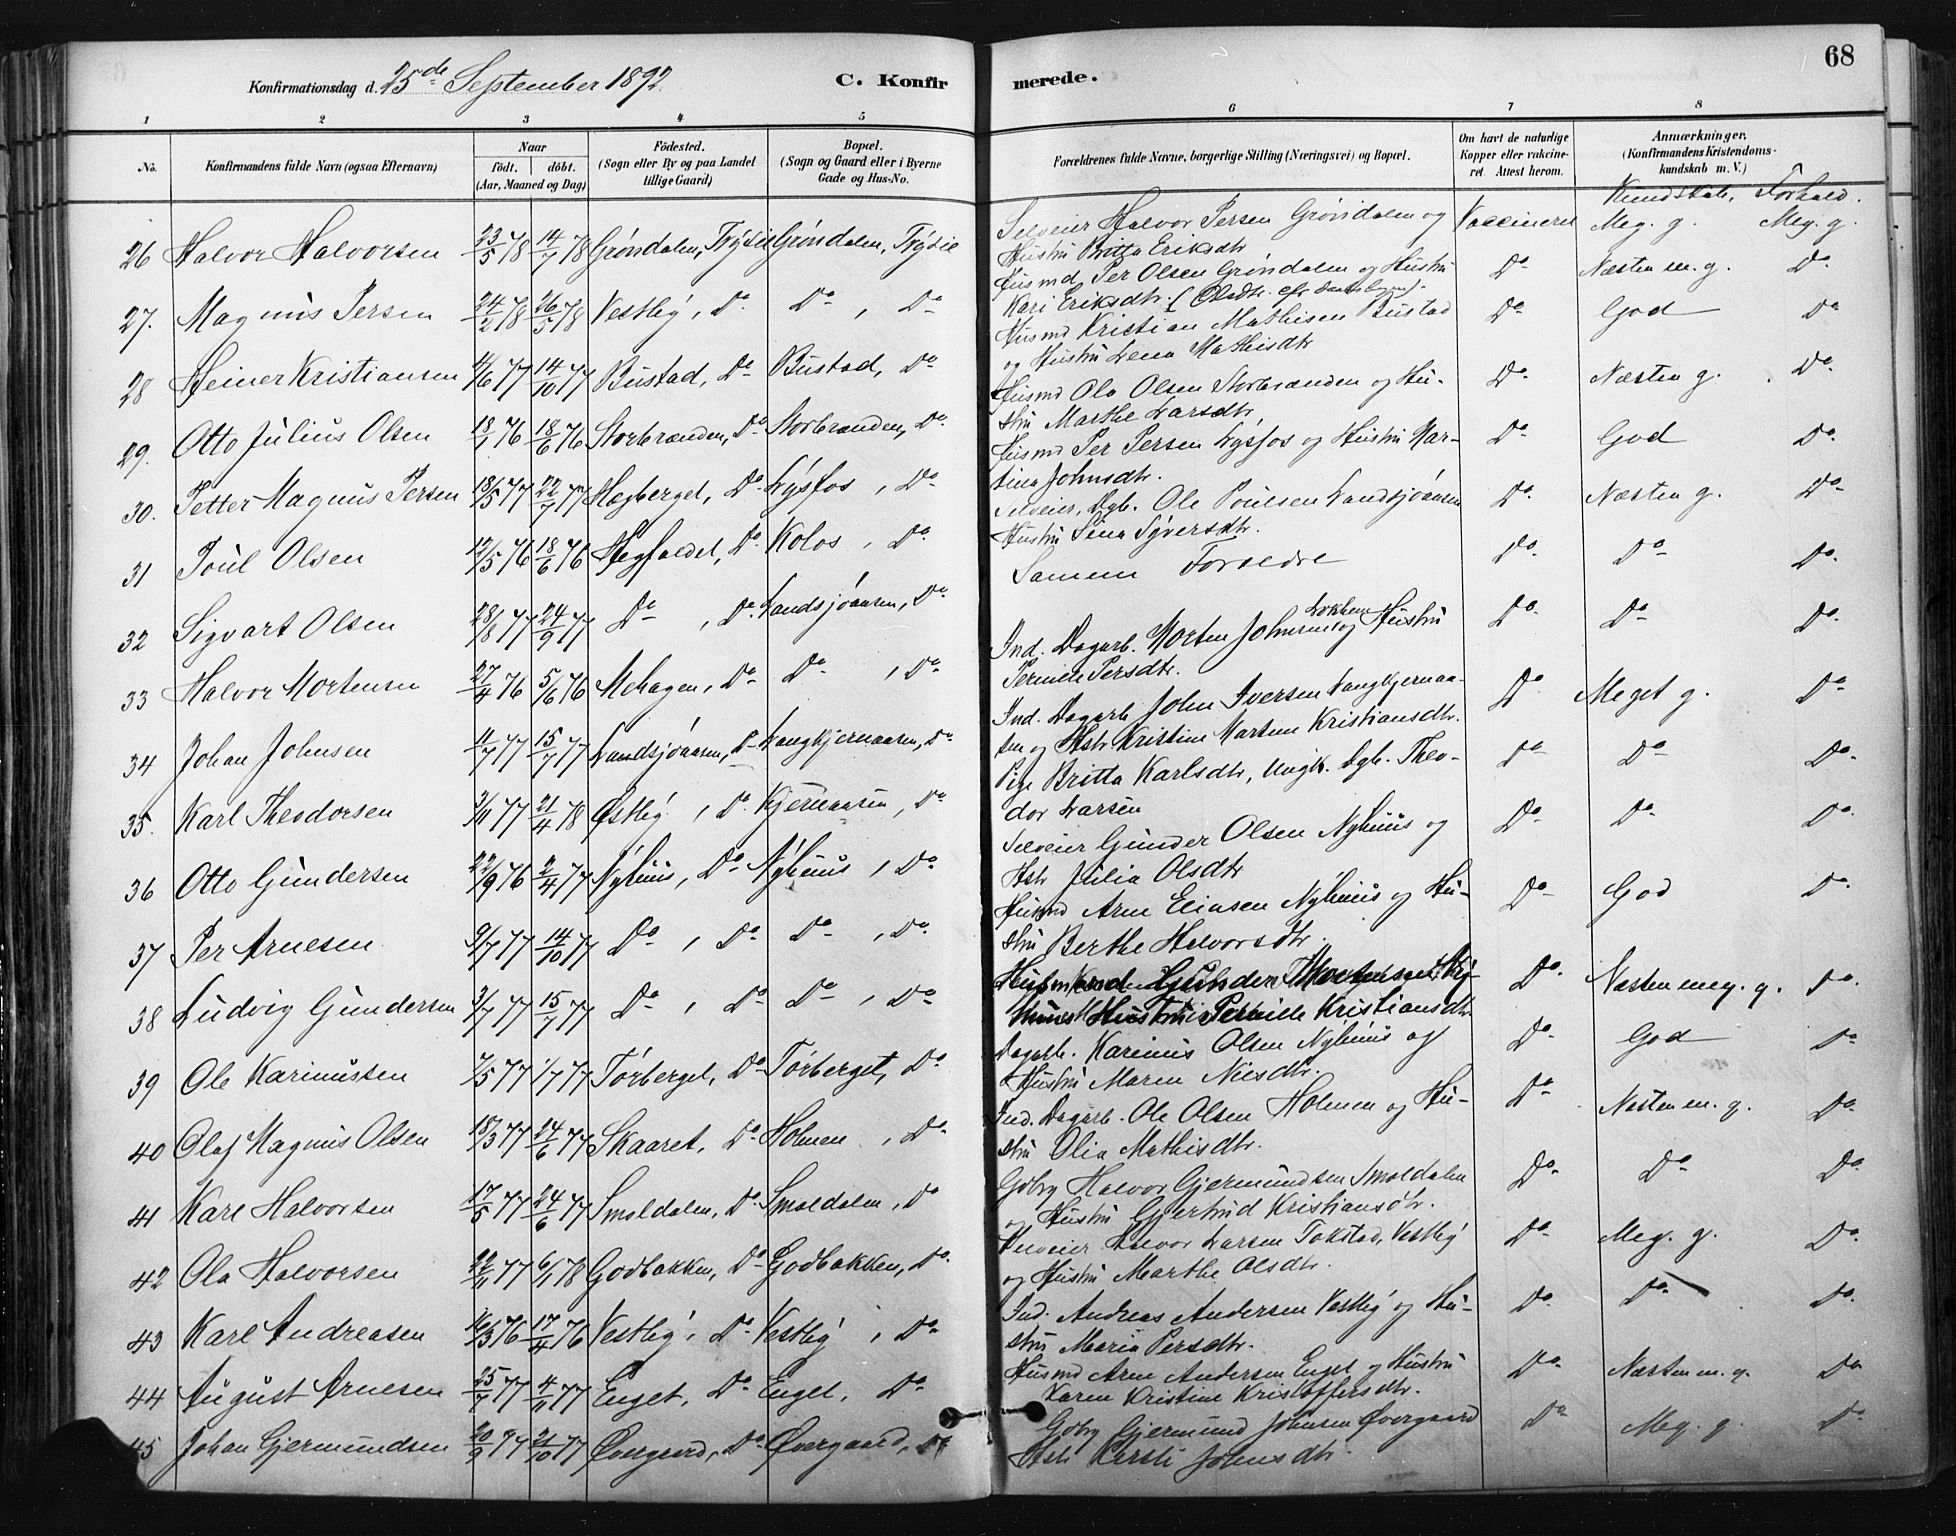 68
Konfirmationsdag d. 25de September 1892.
C. Konfirmerede.
1 2 3 4 5 6 7 8
No. Konfirmandens fulde Navn (ogsaa Efternavn) Naar födt. döbt. (Aar, Maaned og Dag) Födested. (Sogn eller By og paa Landet tillige Gaard) Bopæl. (Sogn og Gaard eller i Byerne Gade og Hus-No. Forældrenes fulde Navne, borgerlige Stilling (Næringsvei) og Bopæl. Om havt de naturlige Kopper eller vakcineret. Attest herom. Anmærkninger. (Konfirmandens Kristendomskundskab m. V.)
Kundskab, Forhold.
26 Halvor Halvorsen 23/5 78 14/7 78 Grøndalen, Trysil Grøndalen, Trysil Selveier Halvor Persen Grøndalen og Vaccineret Meg. g. Meg. g.
Hustru Britta Eriksdtr
27. Magnus Persen 24/2 78 26/5 78 Vestby, Do Do, Do Husmd Per Olsen Grøndalen og Hustru Do Næsten m. g. Do
Kari Eriksdtr.
28 Heiner Kristiansen 4/6 77 14/10 77 Bustad, Do Bustad, Do Husmd Kristian Mathisen Bustad Do God Do
og Hustru Lena Mathisdtr
29. Otto Julius Olsen 18/1 76 18/6 76 Storbrænden, Do Storbrænden, Do Husmd Ola Olsen Storbrænden og Hu- Do Næsten g. Do
stru Marthe Larsdtr
30. Petter Magnus Persen 18/5 77 22/7 77 Hegberget, Do Lysfos, Do Husmd Per Persen Lysfos og Hustru Mar- Do God Do
tina Johnsdtr.
31 Poul Olsen 12/5 76 18/6 76 Do Kolos, Do Selveier, Dgb. Ole Poulsen Landsjøaasen Do Næsten g. Do
Hustru Sina Syversdtr.
32 Sigvart Olsen 28/8 77 24/9 77 Do, Do Landsjøaasen, Do Samme Forældre Do Do Do
33 Halvor Mortensen 27/4 76 5/6 76 Mehagen, Do Do, Do Ind. Dagarb. Morten Johnsen og Hustru Do Do Do
Pernille Persdtr.
34 Johan Johnsen 11/7 77 15/7 77 Landsjøaasen, Do Langkjernaasen, Do Ind. Dagarb John Iversen Langkjernaa- Do Meget g. Do
sen og Hstr Kristine Martine Kristiansdtr.
35. Karl Theodorsen 3/11 77 21/4 78 Østby, Do Kjernaasen, Do Pige Britta Karlsdtr, Ungk. Dgb. Theo- Do Do Do
dor Larsen
36 Otto Gundersen 22/9 76 2/4 77 Nyhuus, Do Nyhuus, Do Selveier Gunder Olsen Nyhuus og Do Do Do
Hstr Julia Olsdtr
37 Per Arnesen 9/7 77 14/10 77 Do, Do Do, Do Husmd Arne Eliasen Nyhuus og Hu- Do God Do
stru Berthe Halvorsdtr.
38 Ludvig Gundersen 3/7 77 15/7 77 Do, Do Do, Do Husmand Gunder Mortensen Ny- Do Næsten meg. g. Do
huus Hustru Pernille Kristiansdtr
39 Ole Karinussen 7/5 77 1/7 77 Tørberget, Do Tørberget, Do Dagarb. Karinus Olsen Nyhuus og Do God Do
Hustru Maren Nilsdtr.
40 Olaf Magnus Olsen 18/3 77 24/6 77 Skaaret, Do Holmen, Do Ind. Dagarb. Ole Olsen Holmen og Hu- Do Næsten m. g. Do
stru Olia Mathisdtr.
41 Karl Halvorsen 17/5 77 24/6 77 Smoldalen, Do Smoldalen, Do Gdbr Halvor Gjermundsen Smoldalen Do Do Do
og Hustru Gjertrud Kristiansdtr.
42 Ola Halvorsen 22/11 77 6/1 78 Godbakken, Do Godbakken, Do Selveier Halvor Larsen Tokstad, Vestby Do Meg. g. Do
og Hustru Marthe Olsdtr.
43 Karl Andreasen 16/3 76 17/4 76 Vestby, Do Vestby, Do Ind. Andreas Andersen Vestby og Hu- Do Do Do
stru Maria Persdtr.
44 August Arnesen 25/7 77 4/11 77 Enget, Do Enget, Do Husmd Arne Andersen Enget og Hustru Do Næsten m. g. Do
Karen Kristine Kristoffersdtr.
45 Johan Gjermundsen 20/9 77 21/10 77 Øvergaard, Do Øvergaard, Do Gdbr Gjermund Johnsen Øvergaard Do Meg. g. Do
Hstr Kersti Johnsdtr.